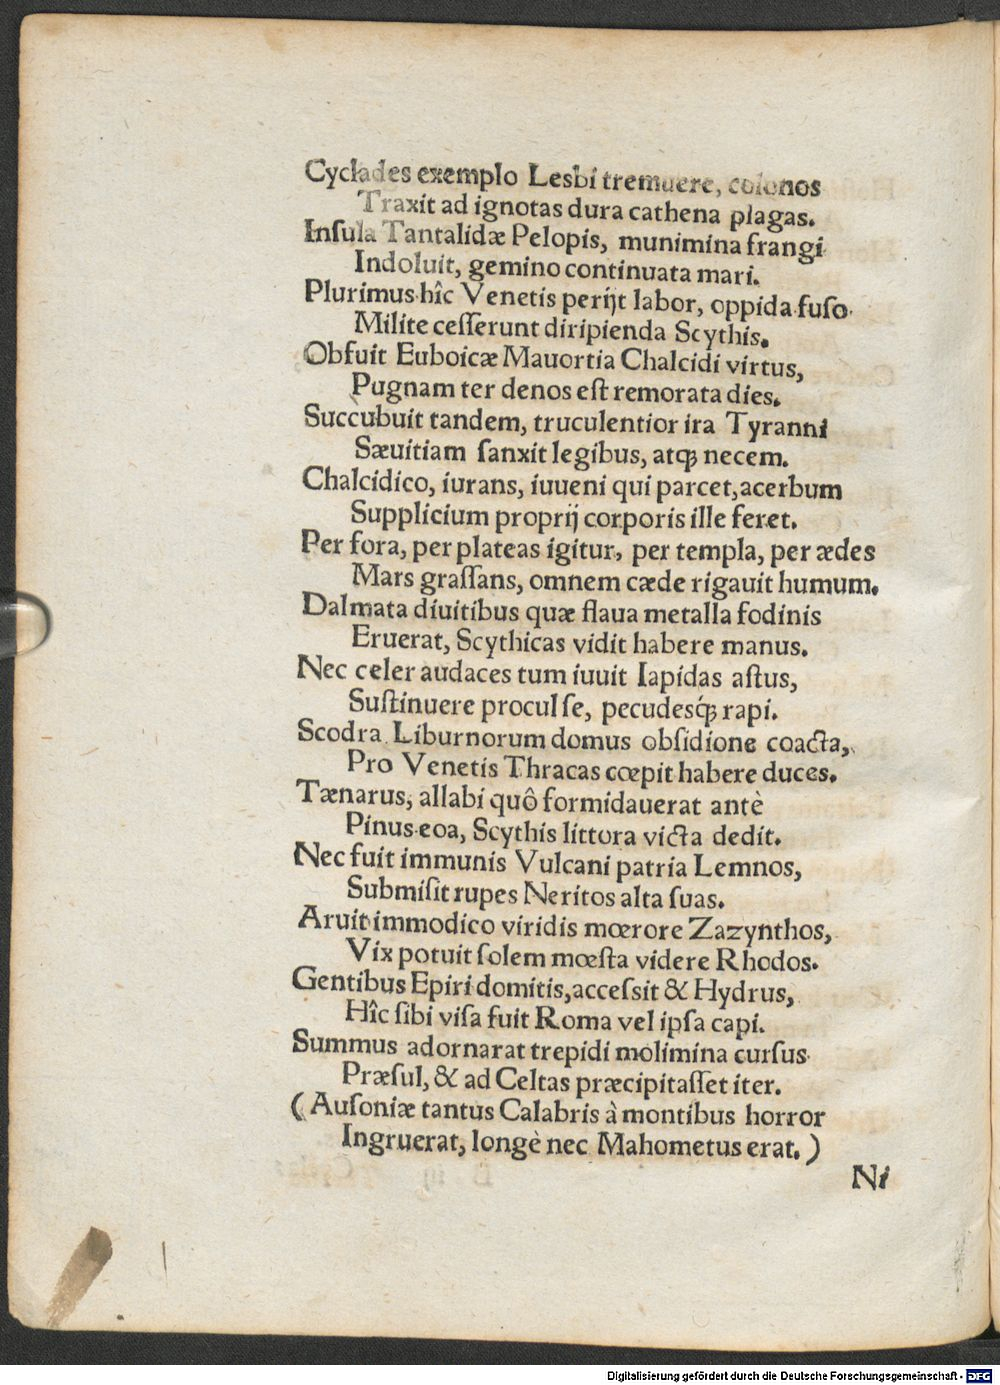 Cyclades exemplo Lesbi tremuere, colonos
Traxit ad ignotas dura cathena plagas.
Inſula Tantalidæ Pelopis, munimina frangi
Indoluit, gemino continuata mari.
Plurimus hîc Venetis perijt labor, oppida fuſo
Milite ceſſerunt diripienda Scythis.
Obfuit Euboicæ Mauortia Chalcidi virtus,
Pugnam ter denos eſt remorata dies.
Succubuit tandem, truculentior ira Tyranni
Sæuitiam ſanxit legibus, atqꝫ necem.
Chalcidico, iurans, iuueni qui parcet, acerbum
Supplicium proprij corporis ille feret.
Per fora, per plateas igitur, per templa, per ædes
Mars graſſans, omnem cæde rigauit humum.
Dalmata diuitibus quæ flaua metalla fodinis
Eruerat, Scythicas vidit habere manus.
Nec celer audaces tum iuuit Iapidas aſtus,
Suſtinuere procul ſe, pecudesq́ꝫ rapi.
Scodra Liburnorum domus obſidione coacta,
Pro Venetis Thracas cœpit habere duces.
Tænarus, allabi quô formidauerat antè
Pinus eoa, Scythis littora victa dedit.
Nec fuit immunis Vulcani patria Lemnos,
Submiſit rupes Neritos alta ſuas.
Aruit immodico viridis mœrore Zazynthos,
Vix potuit ſolem mœſta videre Rhodos.
Gentibus Epiri domitis, acceſsit & Hydrus,
Hîc ſibi viſa fuit Roma vel ipſa capi.
Summus adornarat trepidi molimina cursus
Præſul, & ad Celtas præcipitaſſet iter.
(Auſoniæ tantus Calabris à montibus horror
Ingruerat, longè nec Mahometus erat.)
Ni
Digitalisierung gefördert durch die Deutsche Forschungsgemeinschaft - DFG